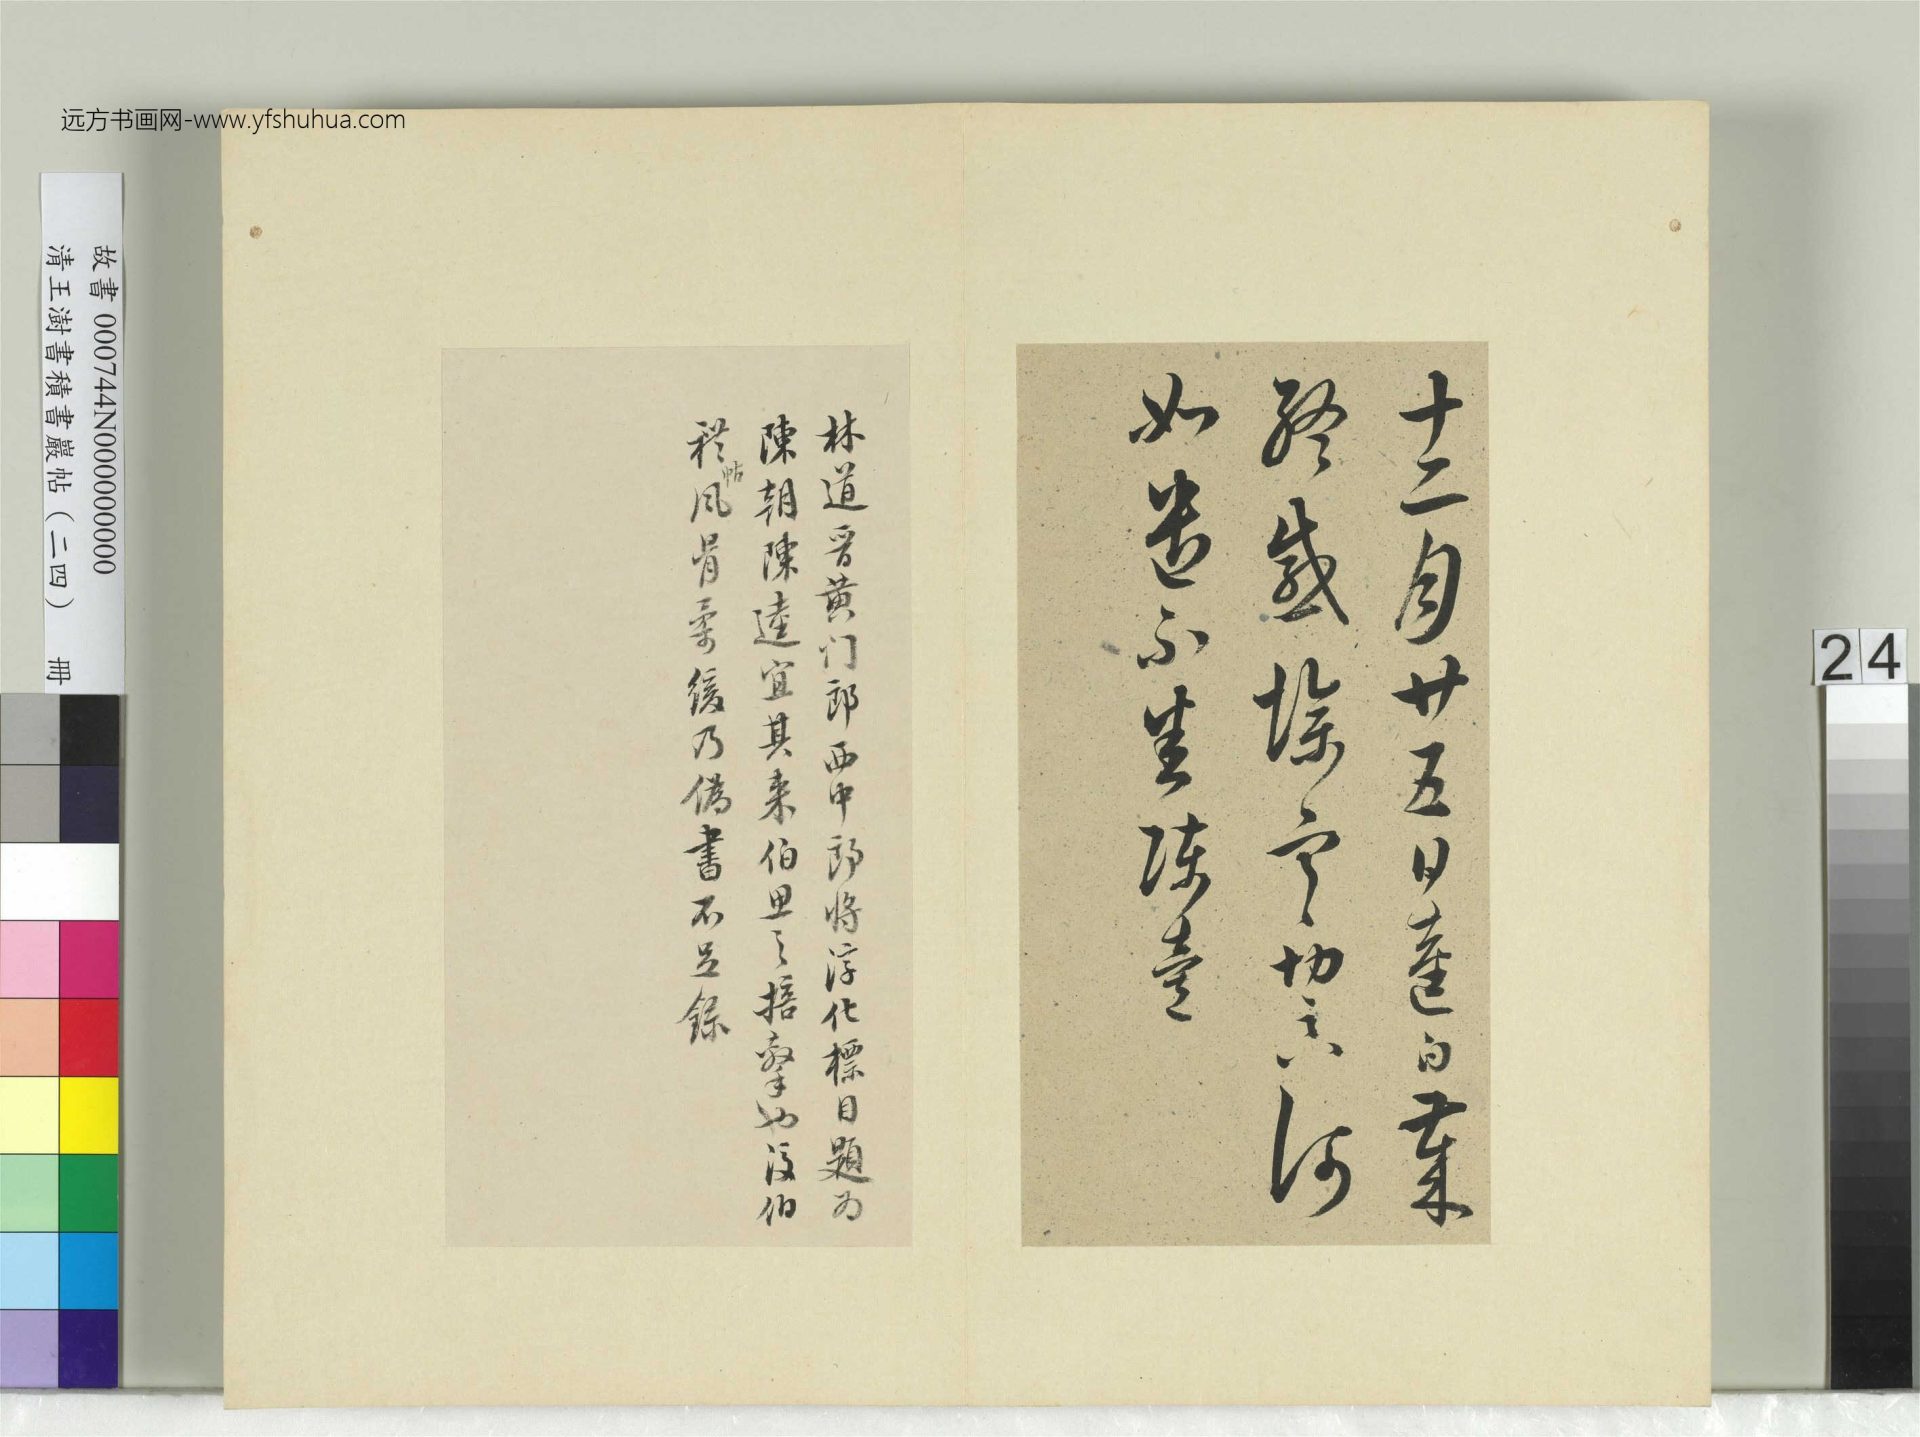 远方书画网-www.yfshuhua.com
故書 000744N000000000
清王澍書積書巖帖（二四） 冊
24
十二月廿五日逵白歲
終感切何
如遣不陳逵
林道晉黃门郎西中郎將淳化標目題为
陳朝陳逵宜其来伯思之掊擊也後伯
禮帖風骨柔緩乃偽書不足錄